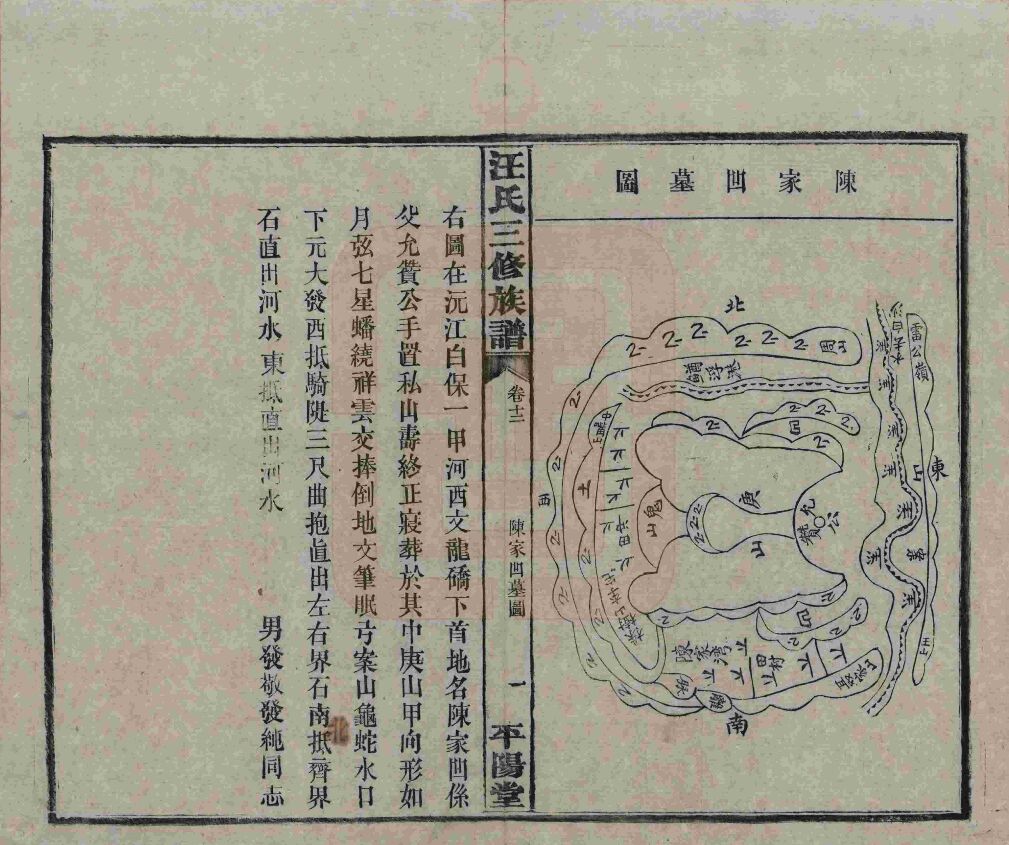 陳家凹墓圖
北
雷公嶺
東
山
案
西
土
鬼山
庚
山
允贊公
陳家湾
田村
南
汪氏三修族譜
卷十二
陳家凹墓圖
一
平陽堂
右圖在沅江白保一甲河西文龍礄下首地名陳家凹係
父允贊公手置私山壽終正寢葬於其中庚山甲向形如
月弦七星蟠繞祥雲交捧倒地文筆眠弓案山龜蛇水口
下元大發西抵騎陡三尺曲抱直出左右界石南抵齊界
石直出河水東抵直出河水
男發敬發純同志
北